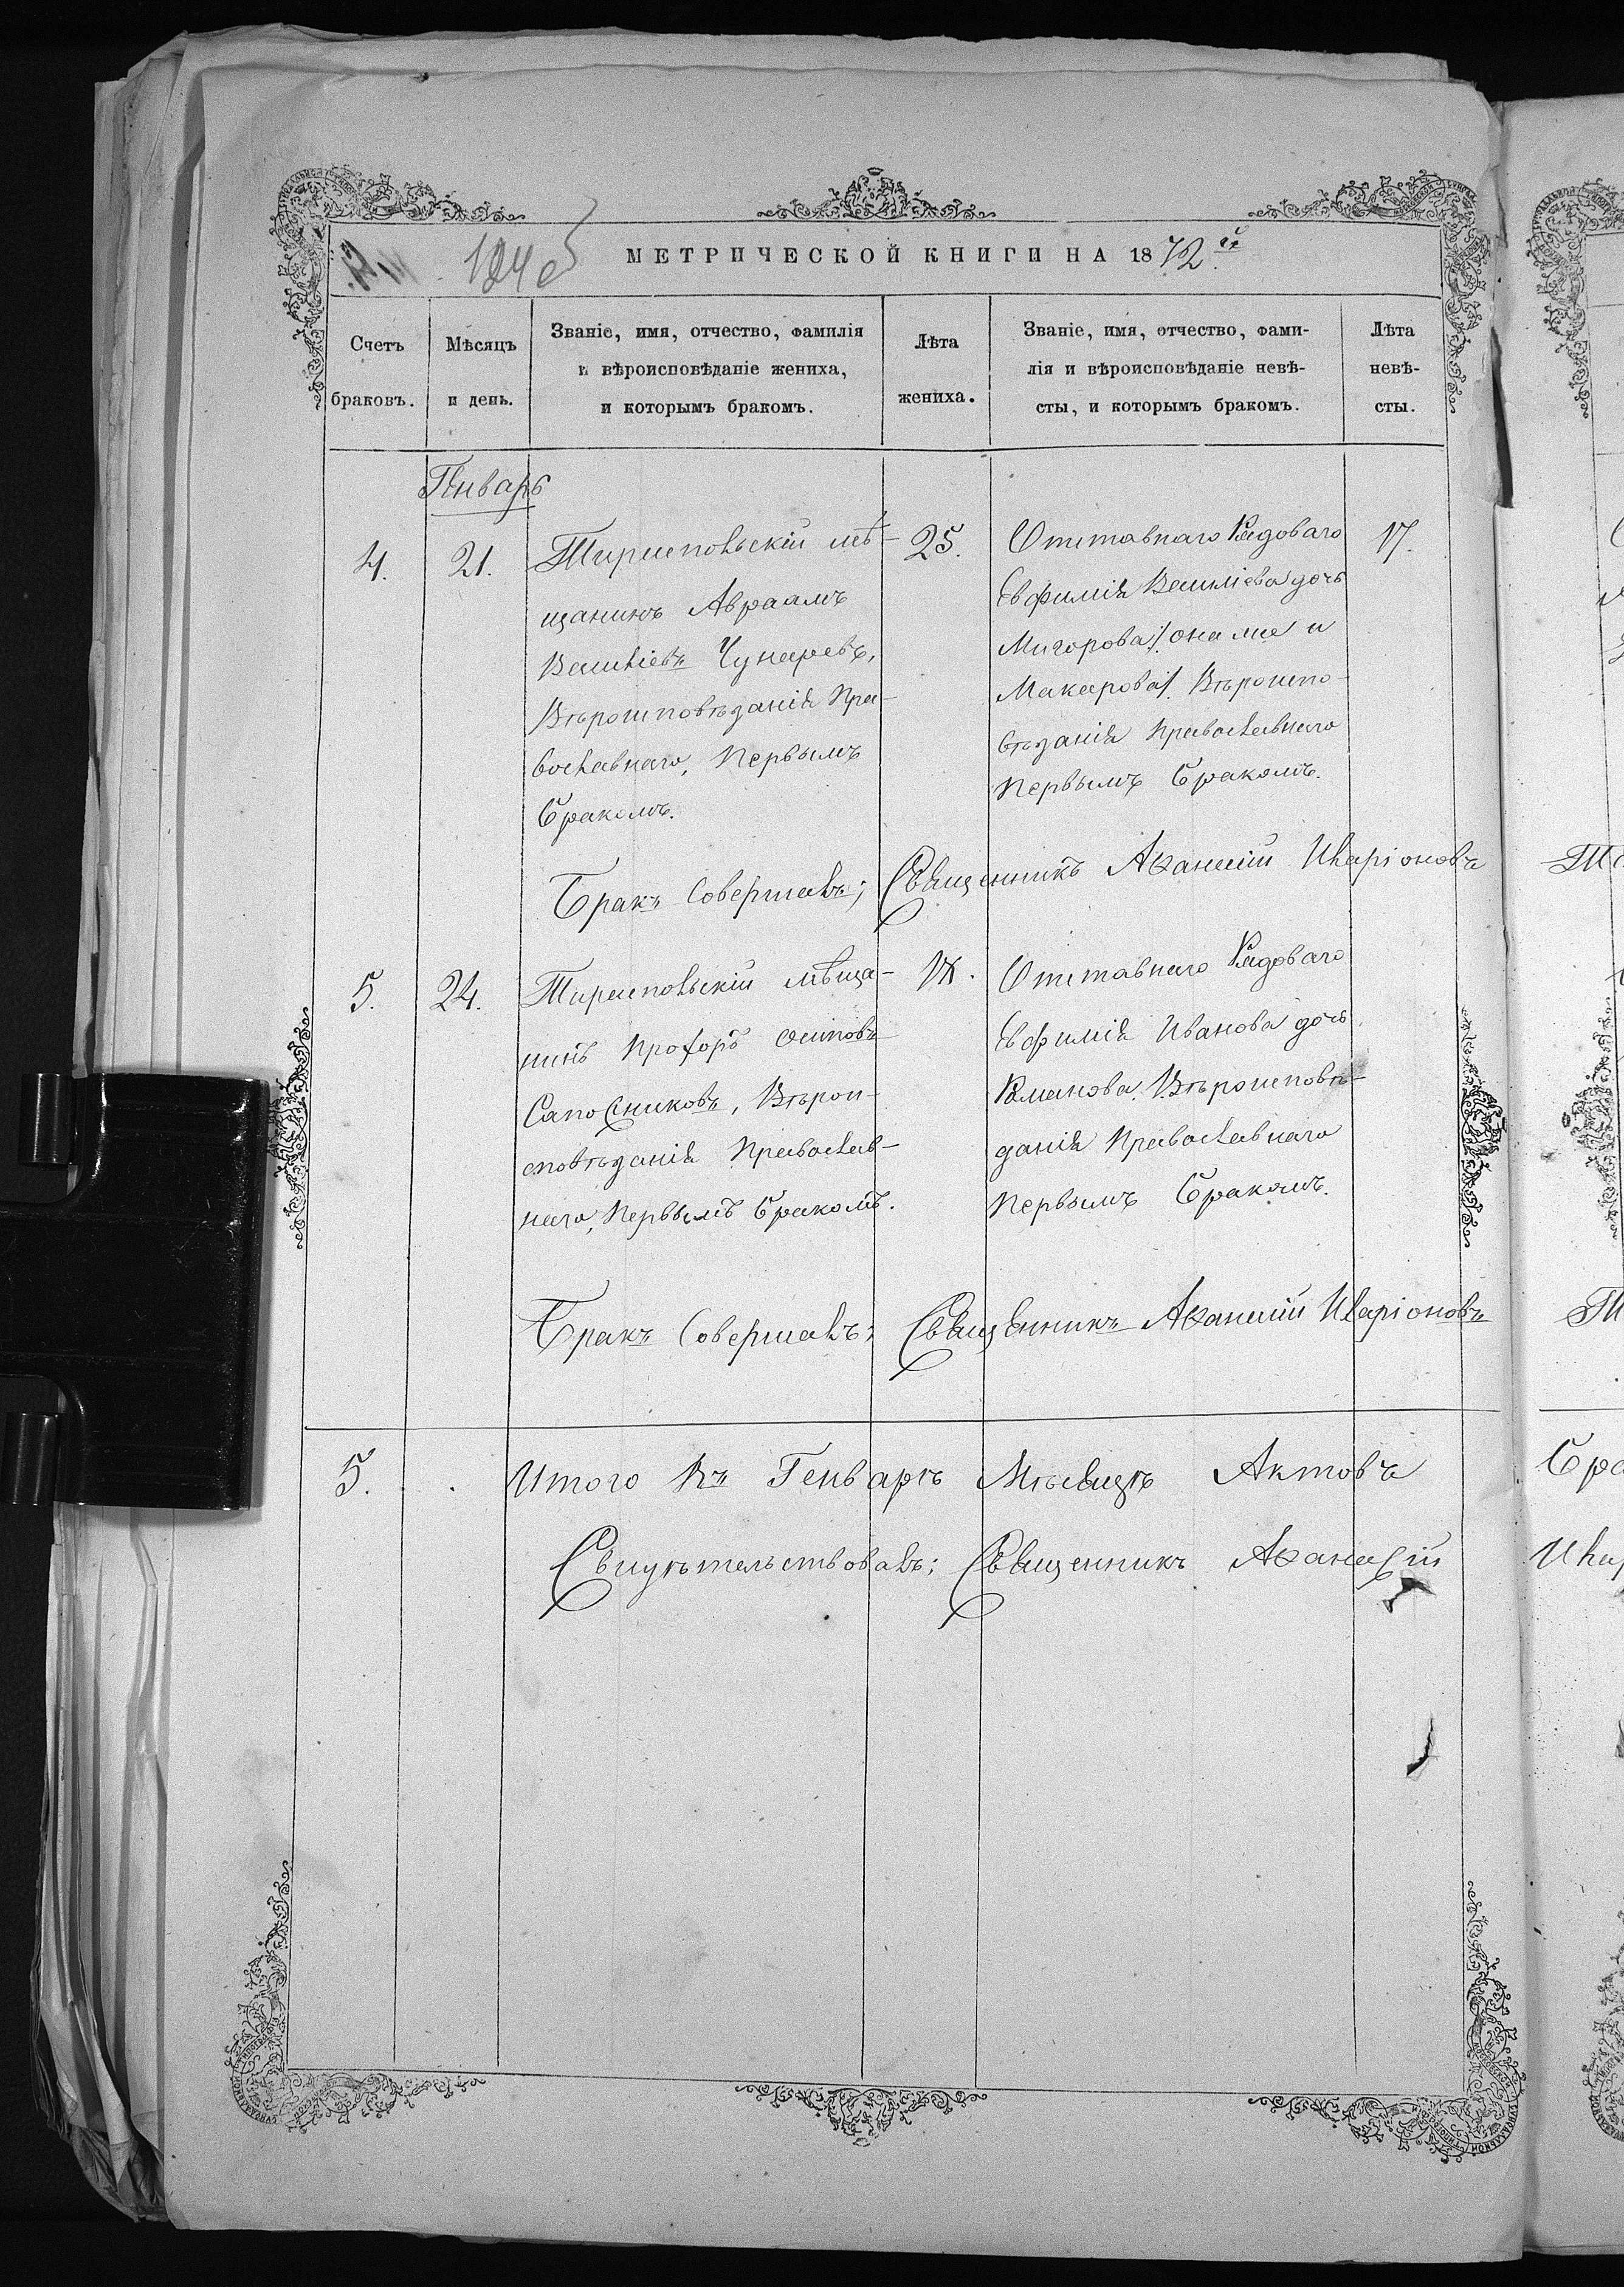 124 об
МЕТРИЧЕСКОЙ КНИГИ НА 1872й
Счетъ браковъ.
Мѣсяцъ и день.
Званіе, имя, отчество, фамилія
и вѣроисповѣданіе жениха,
и которымъ бракомъ.
Лѣта жениха.
Званіе, имя, отчество, фами-
лія и вѣроисповѣданіе невѣ-
сты, и которымъ бракомъ.
Лѣта невѣ-
сты.
Январь
4.
21.
Тираспольскій мѣ-
щанинъ Авраамъ
Василіевъ Чунаревъ,
Вѣроисповѣданія Пра-
вославнаго, Первымъ
бракомъ.
25.
Отставнаго Рядоваго
Евфимія Василіева дочь
Мигорова /: она же и
Макарова :/ Вѣроиспо-
вѣданія Православнаго
Первымъ бракомъ.
17.
Бракъ Совершалъ; Священникъ Аѳанасій Иларіоновъ
5.
24.
Тираспольскій мѣща-
нинъ Прохоръ Осиповъ
Сапосниковъ, Вѣрои-
сповѣданія Православ-
наго, Первымъ бракомъ.
Отставнаго Рядоваго
Евфимія Иванова дочь
Вѣроисповѣ-
данія Православнаго
Первымъ бракомъ.
Бракъ Совершалъ; Священникъ Аѳанасій Иларіоновъ
5. . Итого Въ Генварѣ Мѣсяцѣ Актовъ
Свидѣтельствовалъ; Священникъ Аѳанасій